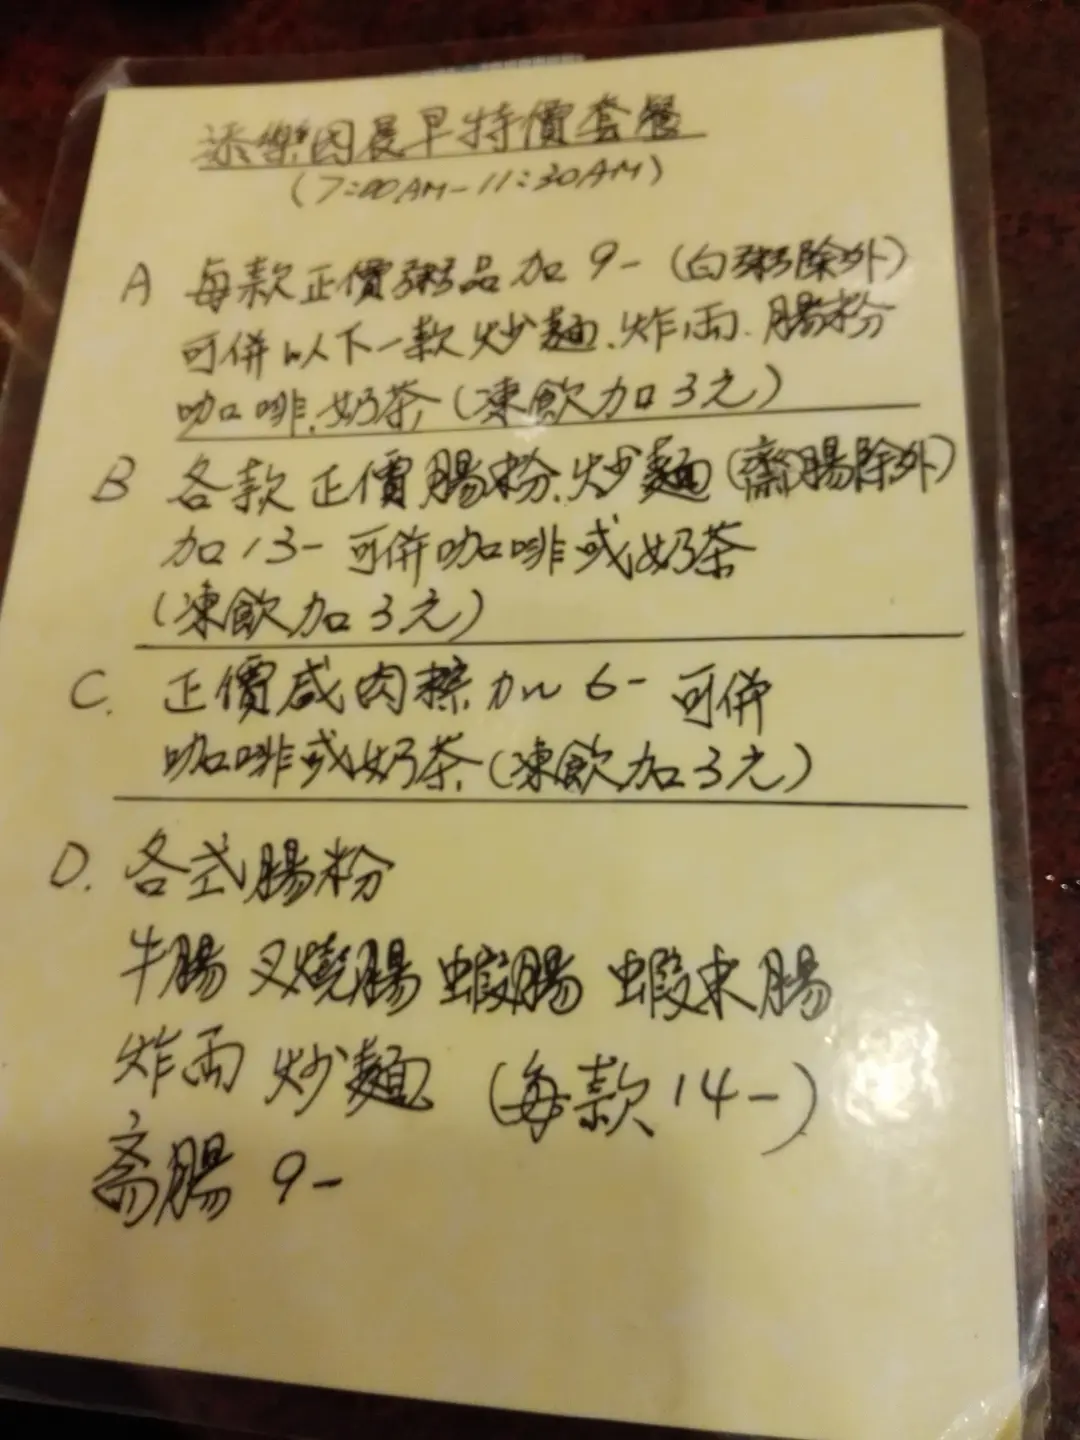 添樂園晨早特價套餐
(7:00AM-11:30AM)
A 每款正價粥品加9- (白粥除外)
可併以下一款炒麵、炸両、腸粉
咖啡、奶茶(凍飲加3元)
B 各款正價腸粉、炒麵(齋腸除外)
加13- 可併咖啡或奶茶
(凍飲加3元)
C. 正價咸肉粽加6- 可併
咖啡或奶茶(凍飲加3元)
D. 各式腸粉
牛腸 叉燒腸 蝦腸 蝦米腸
炸両 炒麵 (每款14-)
斋腸 9-